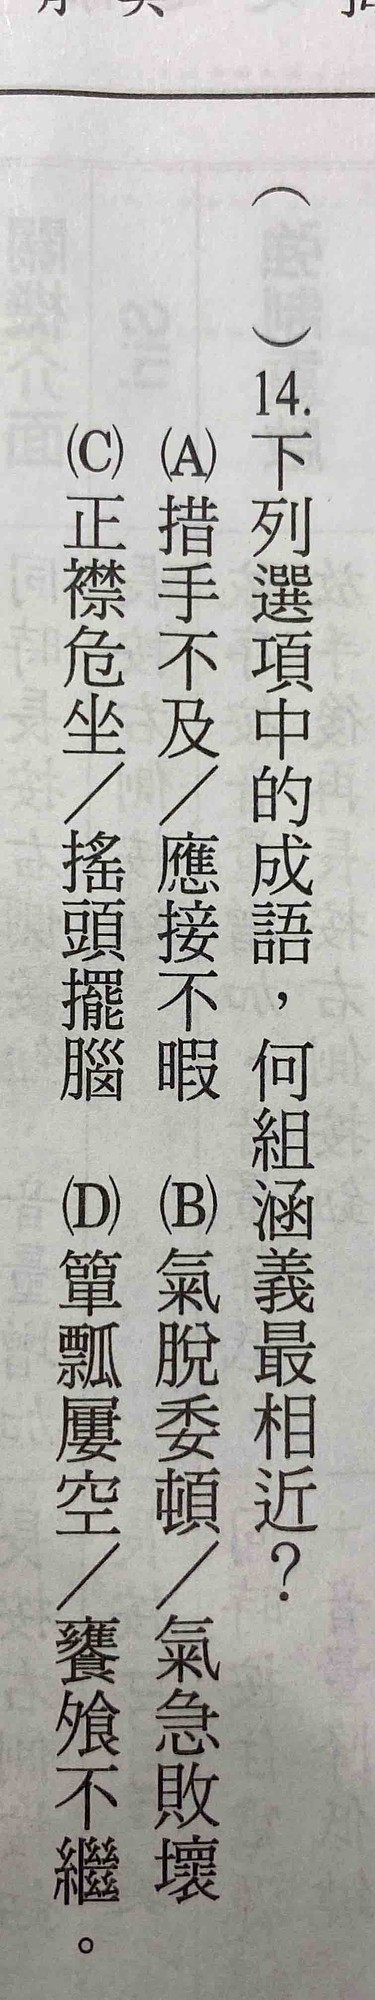 （　）14.下列選項中的成語，何組涵義最相近？
(A)措手不及／應接不暇　(B)氣脫委頓／氣急敗壞
(C)正襟危坐／搖頭擺腦　(D)簞瓢屢空／饔飧不繼。